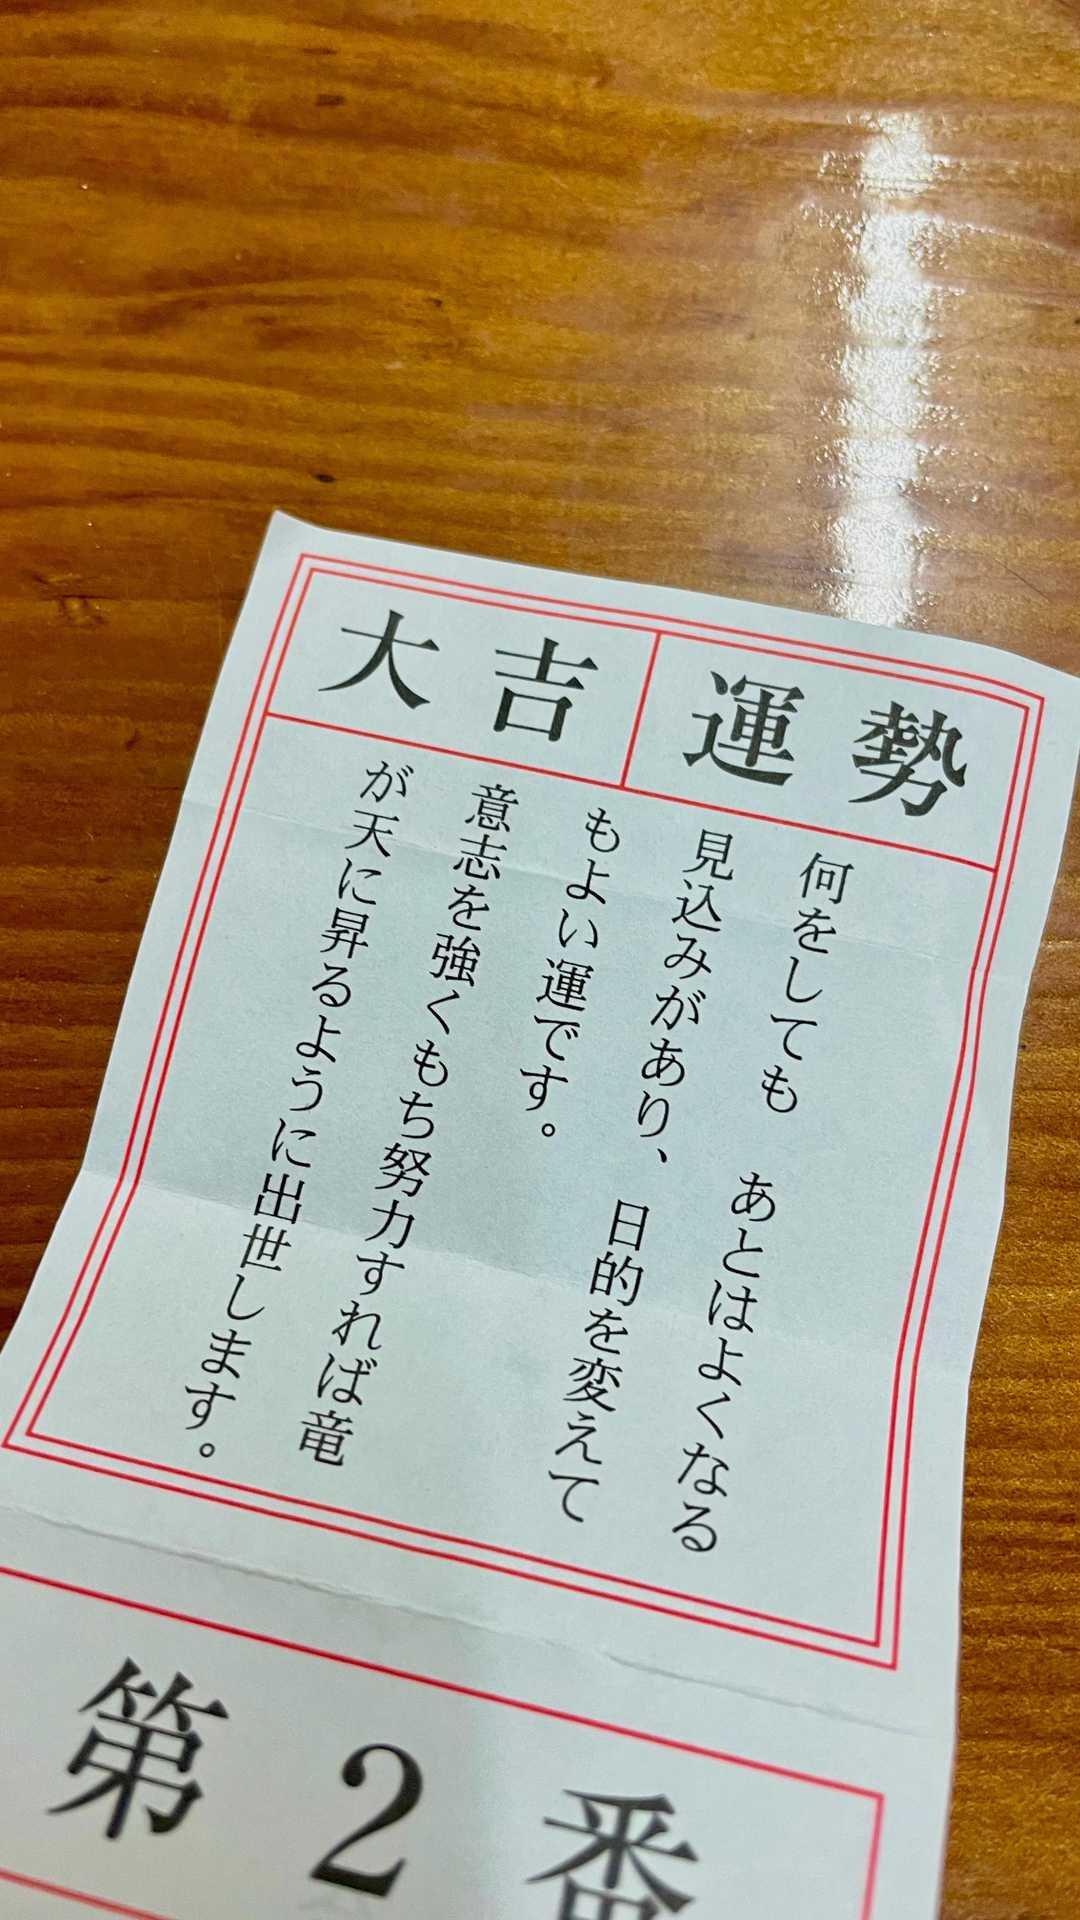 運勢
大吉
何をしても　あとはよくなる
見込みがあり、目的を変えて
もよい運です。
意志を強くもち努力すれば竜
が天に昇るように出世します。
第2番